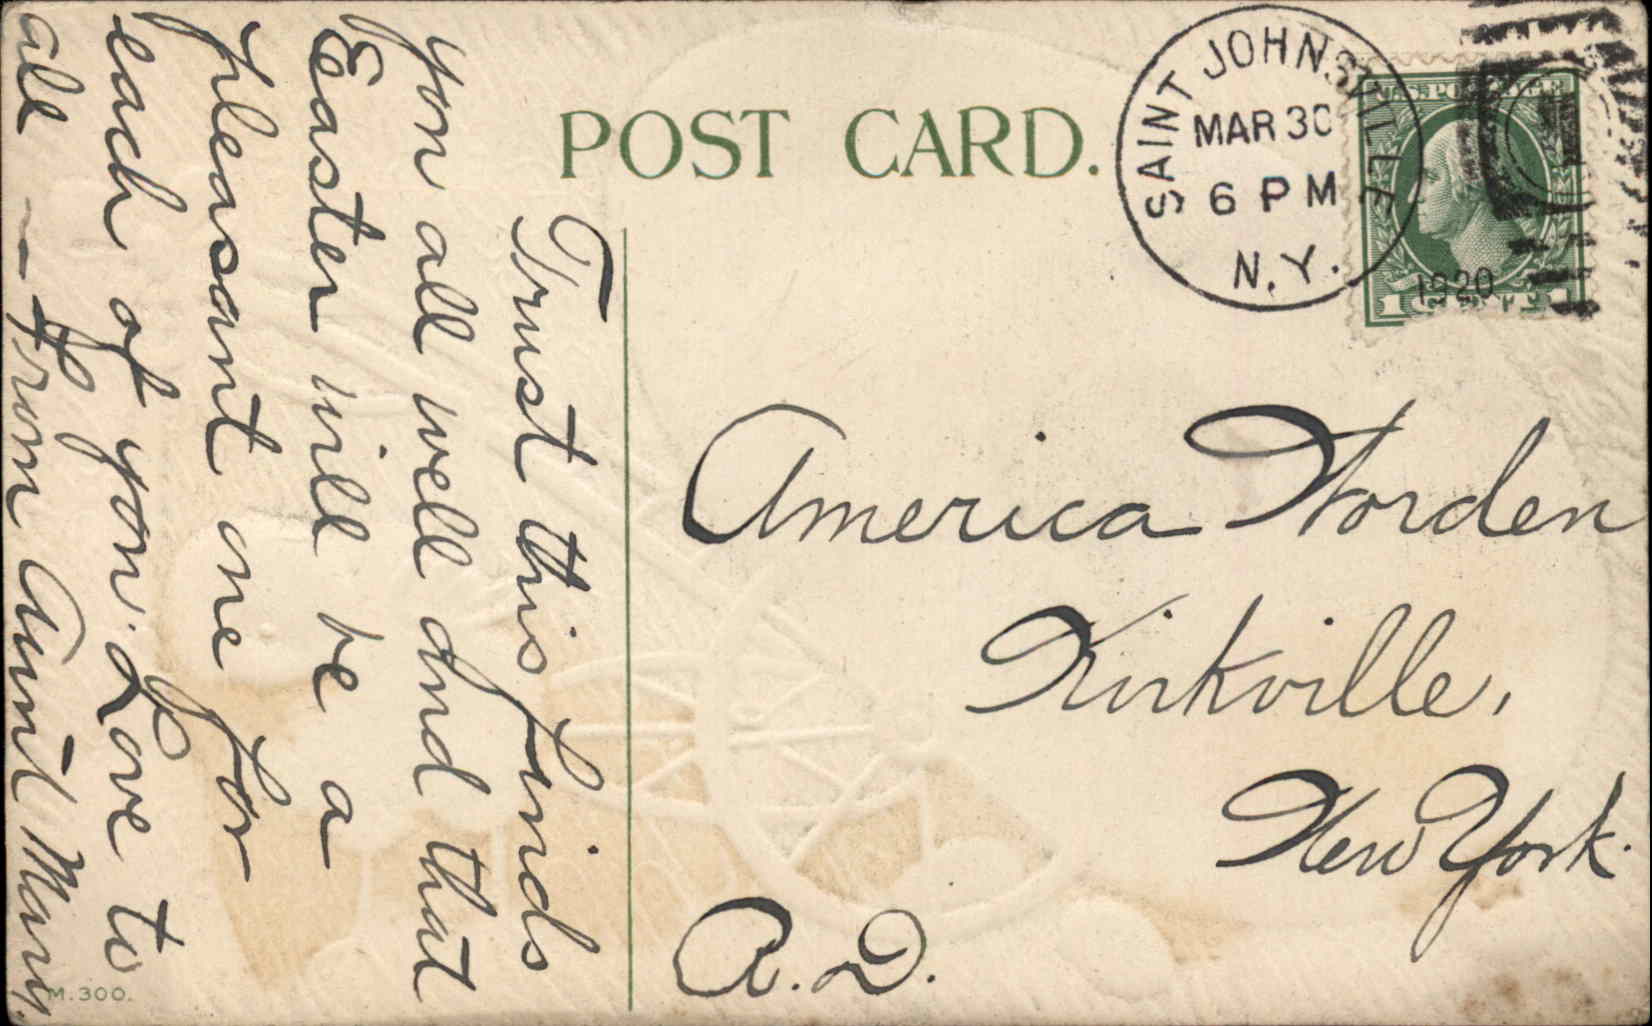 POST CARD.
SAINT JOHNSVILLE
MAR 30
6 PM
N.Y.
1920
U.S. POSTAGE
Trust this finds
you all well and that
Easter will be a
pleasant one for
each of you. Love to
all — From Aunt Mary.
America Worden
Kirkville,
New York.
R.D.
M.300.